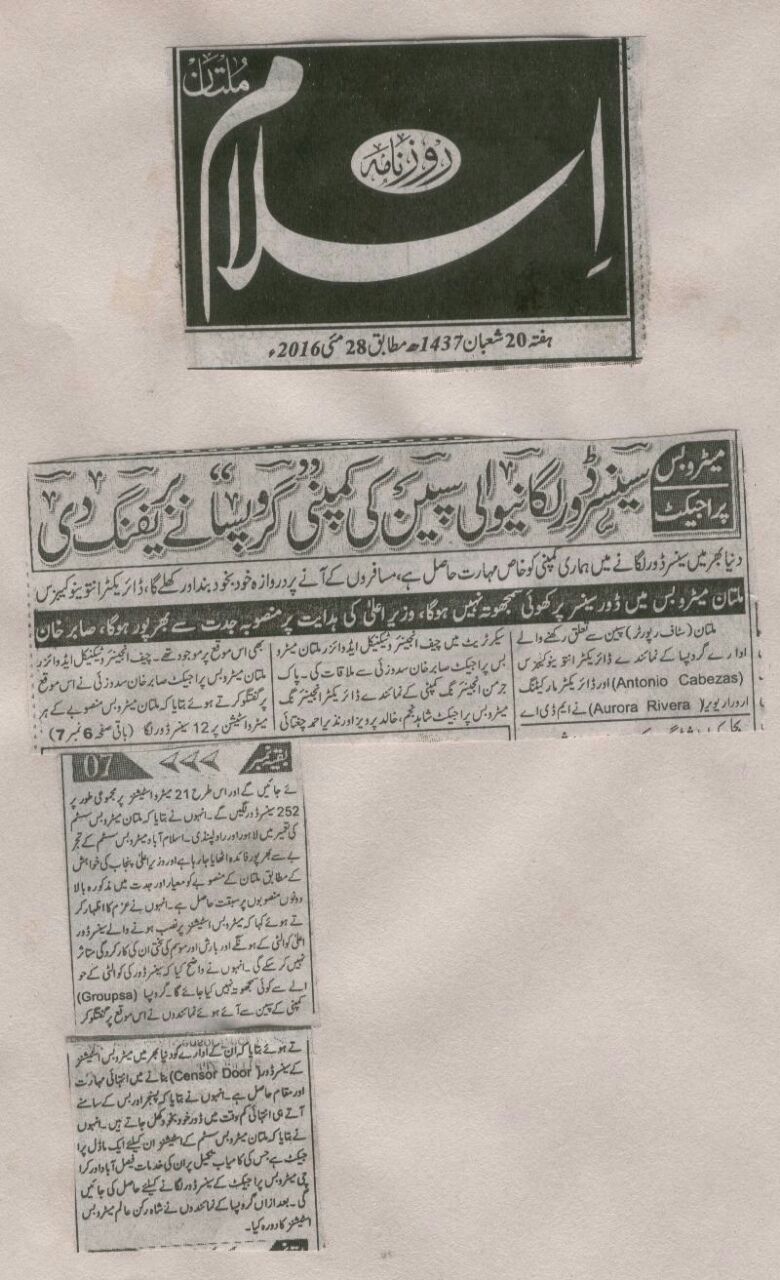 ملتان
روزنامہ
اسلام
ہفتہ 20 شعبان 1437ھ مطابق 28 مئی 2016ء
میٹروبس
پراجیکٹ
سینسر ڈور لگانیوالی سپین کی کمپنی ’’گروپسا‘‘ نے بریفنگ دی
دنیا بھر میں سینسر ڈور لگانے میں ہماری کمپنی کو خاص مہارت حاصل ہے، مسافروں کے آنے پر دروازہ خود بخود بند اور کھلے گا، ڈائریکٹر انتونیو کیبزس
ملتان میٹروبس میں ڈور سینسر پر کھوئی سمجھوتہ نہیں ہوگا، وزیر اعلیٰ کی ہدایت پر منصوبہ جدت سے بھرپور ہوگا، صابر خان
ملتان (سٹاف رپورٹر) سپین سے تعلق رکھنے والے
ادارے گروپسا کے نمائندے ڈائریکٹر انتونیو کیبزس
(Antonio Cabezas) اور ڈائریکٹر مارکیٹنگ
اروراریویرا (Aurora Rivera) نے ایم ڈی اے
سیکرٹریٹ میں چیف انجینئر و ٹیکنیکل ایڈوائزر ملتان میٹرو
بس پراجیکٹ صابر خان سدوزئی سے ملاقات کی۔ پاک
جرمن انجینئرنگ کمپنی کے نمائندے ڈائریکٹر انجینئرنگ
میٹروبس پراجیکٹ شاہد نجم، خالد پرویز اور نذیر احمد چغتائی
بھی اس موقع پر موجود تھے۔ چیف انجینئر و ٹیکنیکل ایڈوائزر
ملتان میٹروبس پراجیکٹ صابر خان سدوزئی نے اس موقع
پر گفتگو کرتے ہوئے بتایا کہ ملتان میٹروبس منصوبے کے ہر
میٹروسٹیشن پر 12 سینسر ڈور لگا (باقی صفحہ 6 نمبر 7)
بقیہ نمبر 07
ئے جائیں گے اور اس طرح 21 میٹرو اسٹیشنز پر مجموعی طور پر
252 سینسر ڈور لگیں گے۔ انہوں نے بتایا کہ ملتان میٹروبس سسٹم
کی تعمیر میں لاہور اور راولپنڈی۔ اسلام آباد میٹروبس سسٹم کے تجر
بے سے بھرپور فائدہ اٹھایا جارہا ہے اور وزیر اعلیٰ پنجاب کی خواہش
کے مطابق ملتان کے منصوبے کو معیار اور جدت میں مذکورہ بالا
دونوں منصوبوں پر سبقت حاصل ہے۔ انہوں نے عزم کا اظہار کر
تے ہوئے کہا کہ میٹروبس اسٹیشنز پر نصب ہونے والے سینسر ڈور
اعلیٰ کوالٹی کے ہونگے اور بارش اور موسم کی سختی ان کی کارکردگی متاثر
نہیں کر سکے گی۔ انہوں نے واضح کیا کہ سینسر ڈور کی کوالٹی کے حو
الے سے کوئی سمجھوتہ نہیں کیا جائے گا۔ گروپسا (Groupsa)
کمپنی کے سپین سے آئے ہوئے نمائندوں نے اس موقع پر گفتگو کر
تے ہوئے بتایا کہ ان کے ادارے کو دنیا بھر میں میٹروبس اسٹیشنز
کے سینسر ڈور (Censor Door) بنانے میں انتہائی مہارت
اور مقام حاصل ہے۔ انہوں نے بتایا کہ پسنجر اور بس کے سامنے
آتے ہی انتہائی کم وقت میں ڈور خود بخود کھل جاتے ہیں۔ انہوں
نے بتایا کہ ملتان میٹروبس سسٹم کے اسٹیشنز ان کیلئے ایک ماڈل پرا
جیکٹ ہے جس کی کامیاب تکمیل پر ان کی خدمات فیصل آباد اور کرا
چی میٹروبس پراجیکٹ کے سینسر ڈور لگانے کیلئے حاصل کی جائیں
گی۔ بعد ازاں گروپسا کے نمائندوں نے شاہ رکن عالم میٹروبس
اسٹیشنز کا دورہ کیا۔